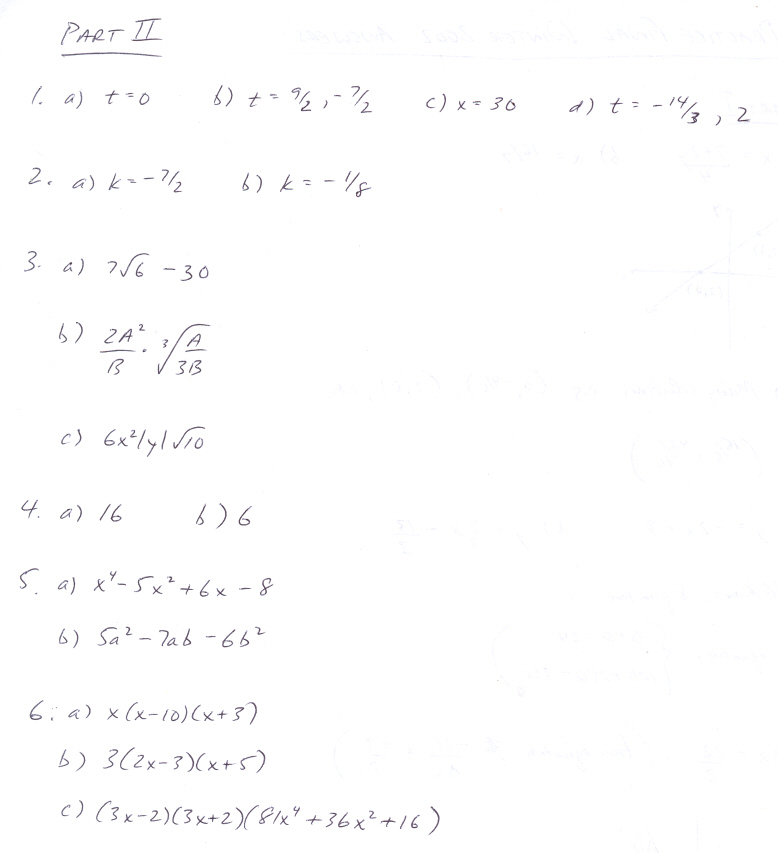 PART II
1. a) t=0 b) t = 9/2, -7/2 c) x = 30 d) t = -14/3, 2
2. a) k = -7/2 b) k = -1/8
3. a) 7√6 - 30
b) 2A²/B · ∛(A/3B)
c) 6x²|y|√10
4. a) 16 b) 6
5. a) x⁴ - 5x² + 6x - 8
b) 5a² - 7ab - 6b²
6. a) x(x-10)(x+3)
b) 3(2x-3)(x+5)
c) (3x-2)(3x+2)(81x⁴ + 36x² + 16)